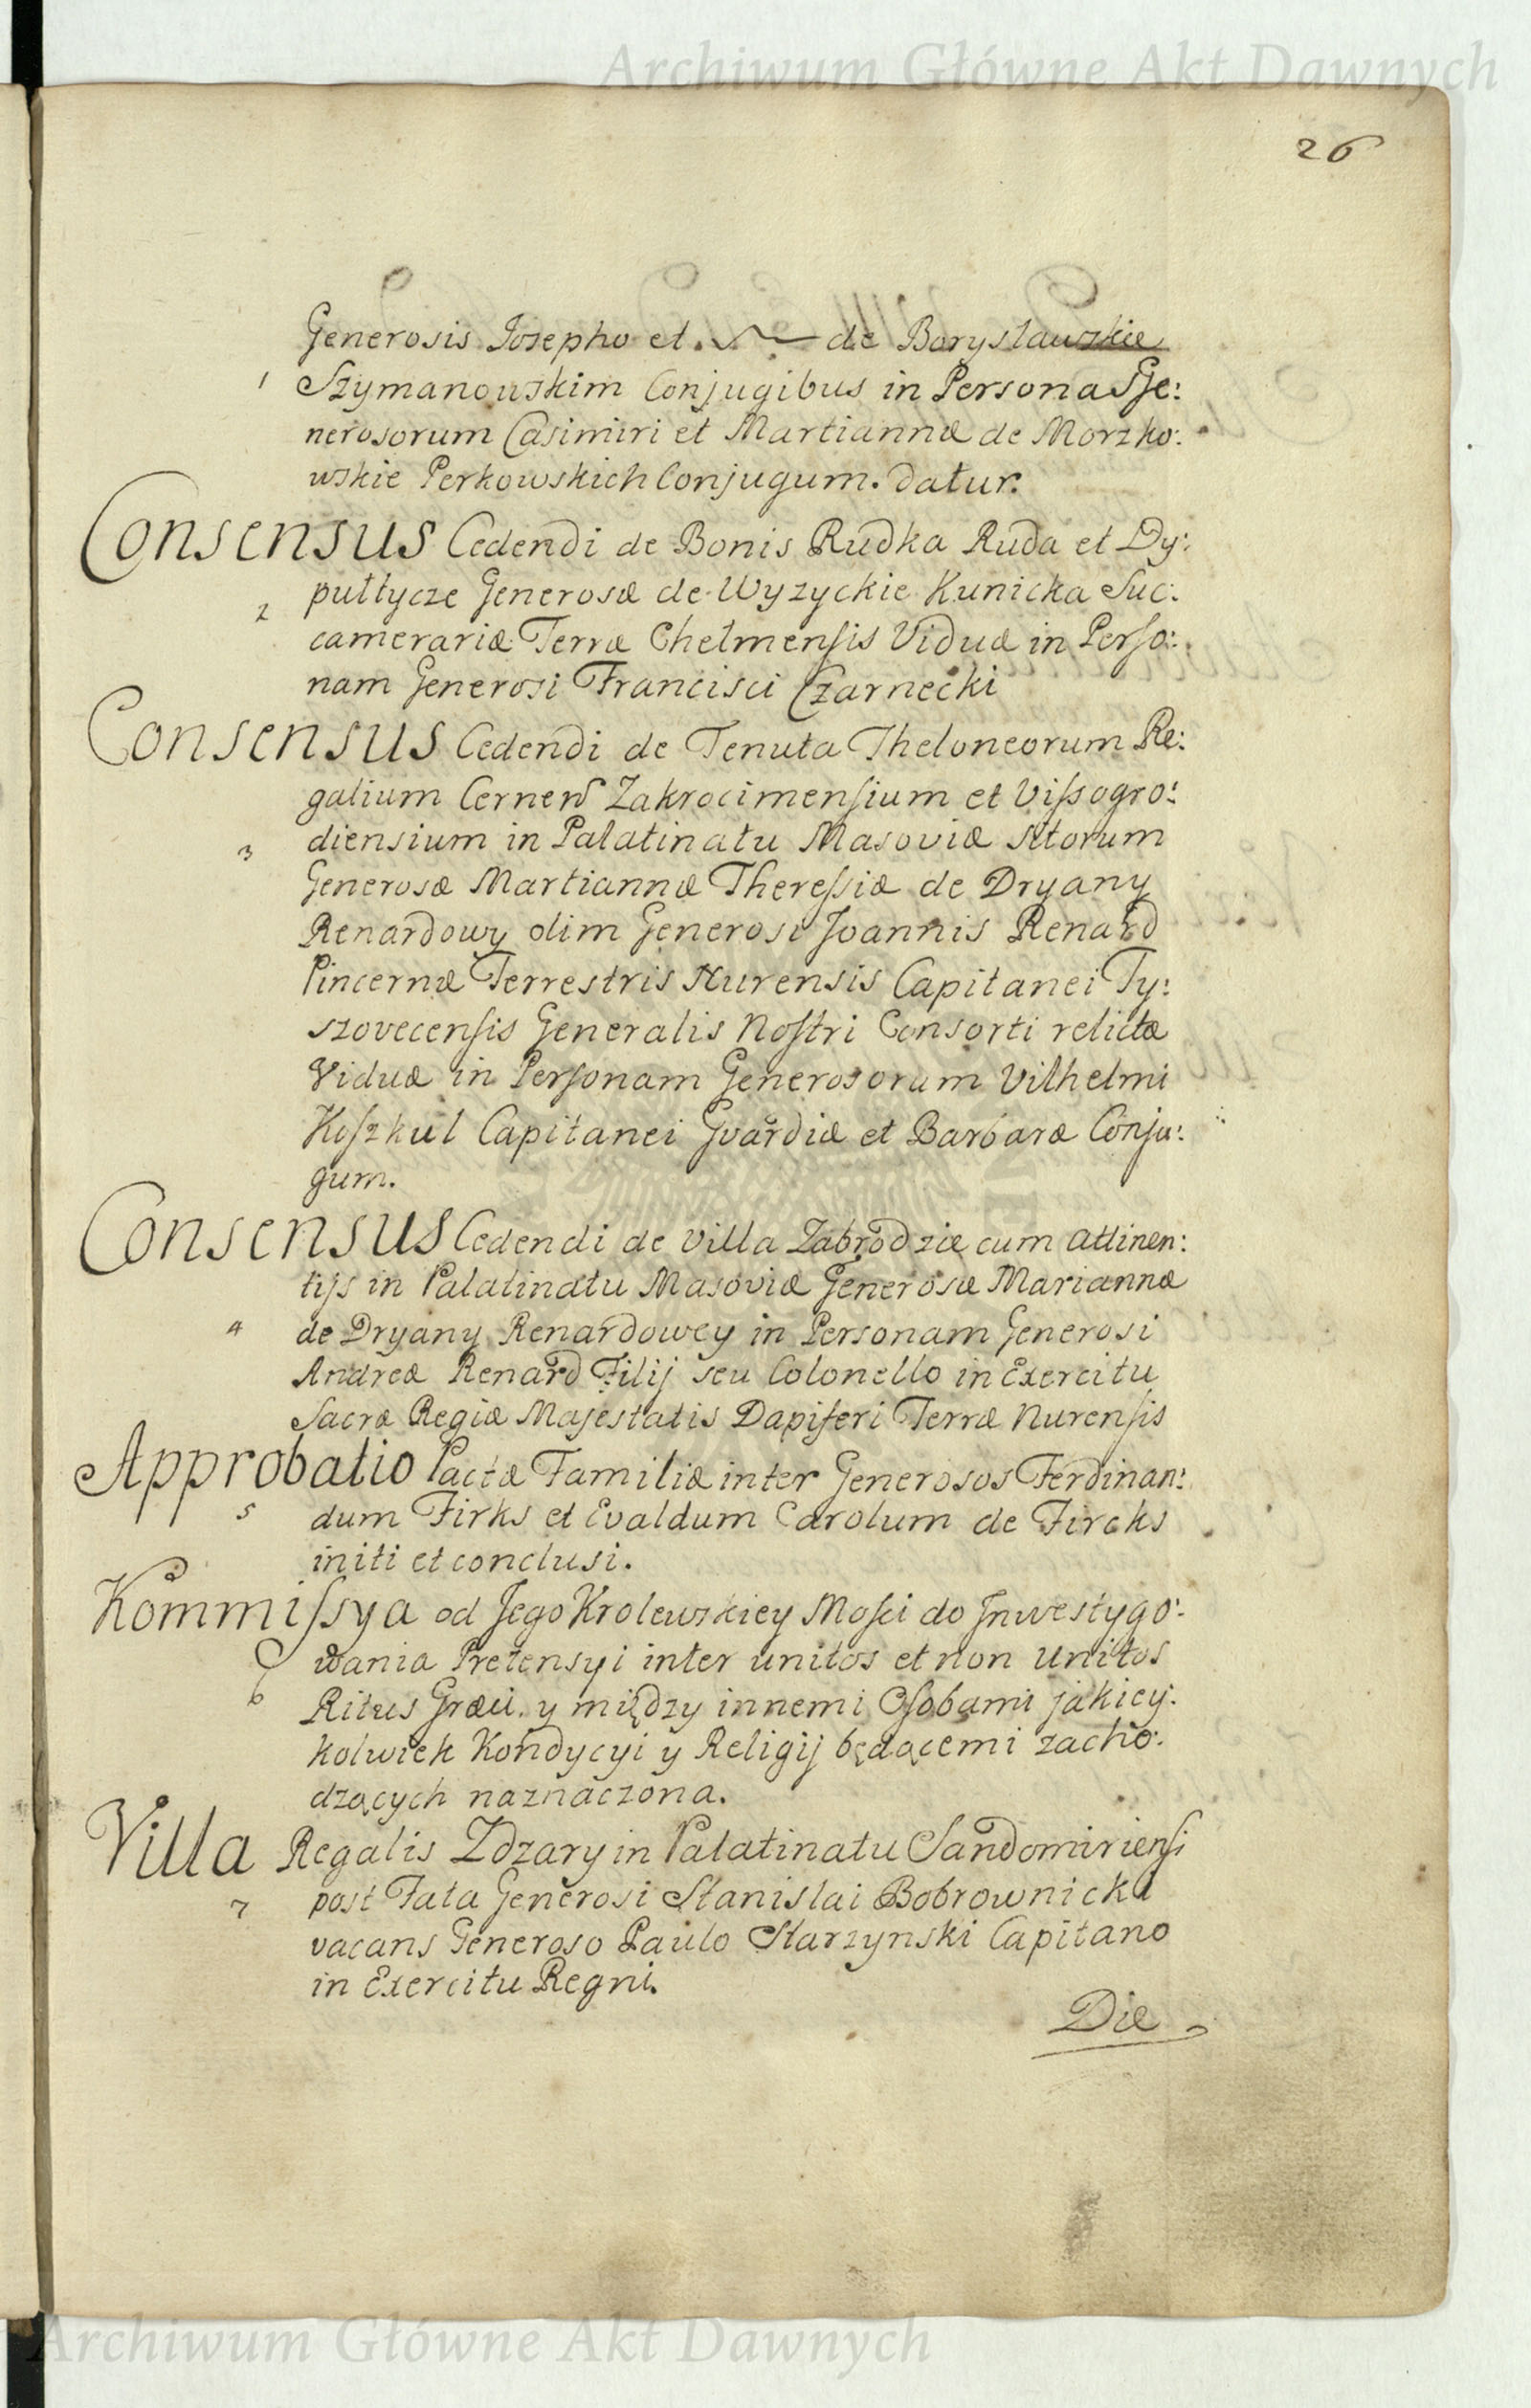 Archiwum Główne Akt Dawnych
26
Generosis Josepho et. de Borysławskie
1 Szymanowskim Conjugibus in Personas Ge:
nerosorum Casimiri et Martiannæ de Morzko:
wskie Perkowskich Conjugum. datur.
Consensus Cedendi de Bonis Rudka Ruda et Dy:
2 pułtycze Generosæ de Wyzyckie Kunicka Suc:
camerariæ Terræ Chelmensis Viduæ in Perso:
nam Generosi Francisci Czarnecki
Consensus Cedendi de Tenuta Theloneorum Re:
galium Cernen Zakrocimensium et Vissogro:
3 diensium in Palatinatu Masoviæ sitorum
Generosæ Martiannæ Theressiæ de Dryany
Renardowy olim Generosi Joannis Renard
Pincernæ Terrestris Nurensis Capitanei Ty:
szovecensis Generalis Nostri Consorti relictæ
Viduæ in Personam Generosorum Vilhelmi
Koszkul Capitanei Gvardiæ et Barbaræ Conju:
gum.
Consensus Cedendi de villa Zabrodzie cum attinen:
tijs in Palatinatu Masoviæ Generosæ Mariannæ
4 de Dryany Renardowey in Personam Generosi
Andreæ Renard Filij seu Colonello in Exercitu
Sacræ Regiæ Majestatis Dapiferi Terræ Nurensis
Approbatio Pactæ Familiæ inter Generosos Ferdinan:
5 dum Firks et Evaldum Carolum de Fircks
initi et conclusi.
Kommissya od Jego Krolewskiey Mosci do Jnwestygo:
wania Pretensyi inter unitos et non Unitos
6 Ritus Græci. y między innemi Osobami jakiey:
kolwiek Kondycyi y Religij będącemi zacho:
dzących naznaczona.
Villa Regalis Zdzary in Palatinatu Sandomiriensi
7 post Fata Generosi Stanislai Bobrownicki
vacans Generoso Paulo Starzynski Capitano
in Exercitu Regni.
Die
Archiwum Główne Akt Dawnych